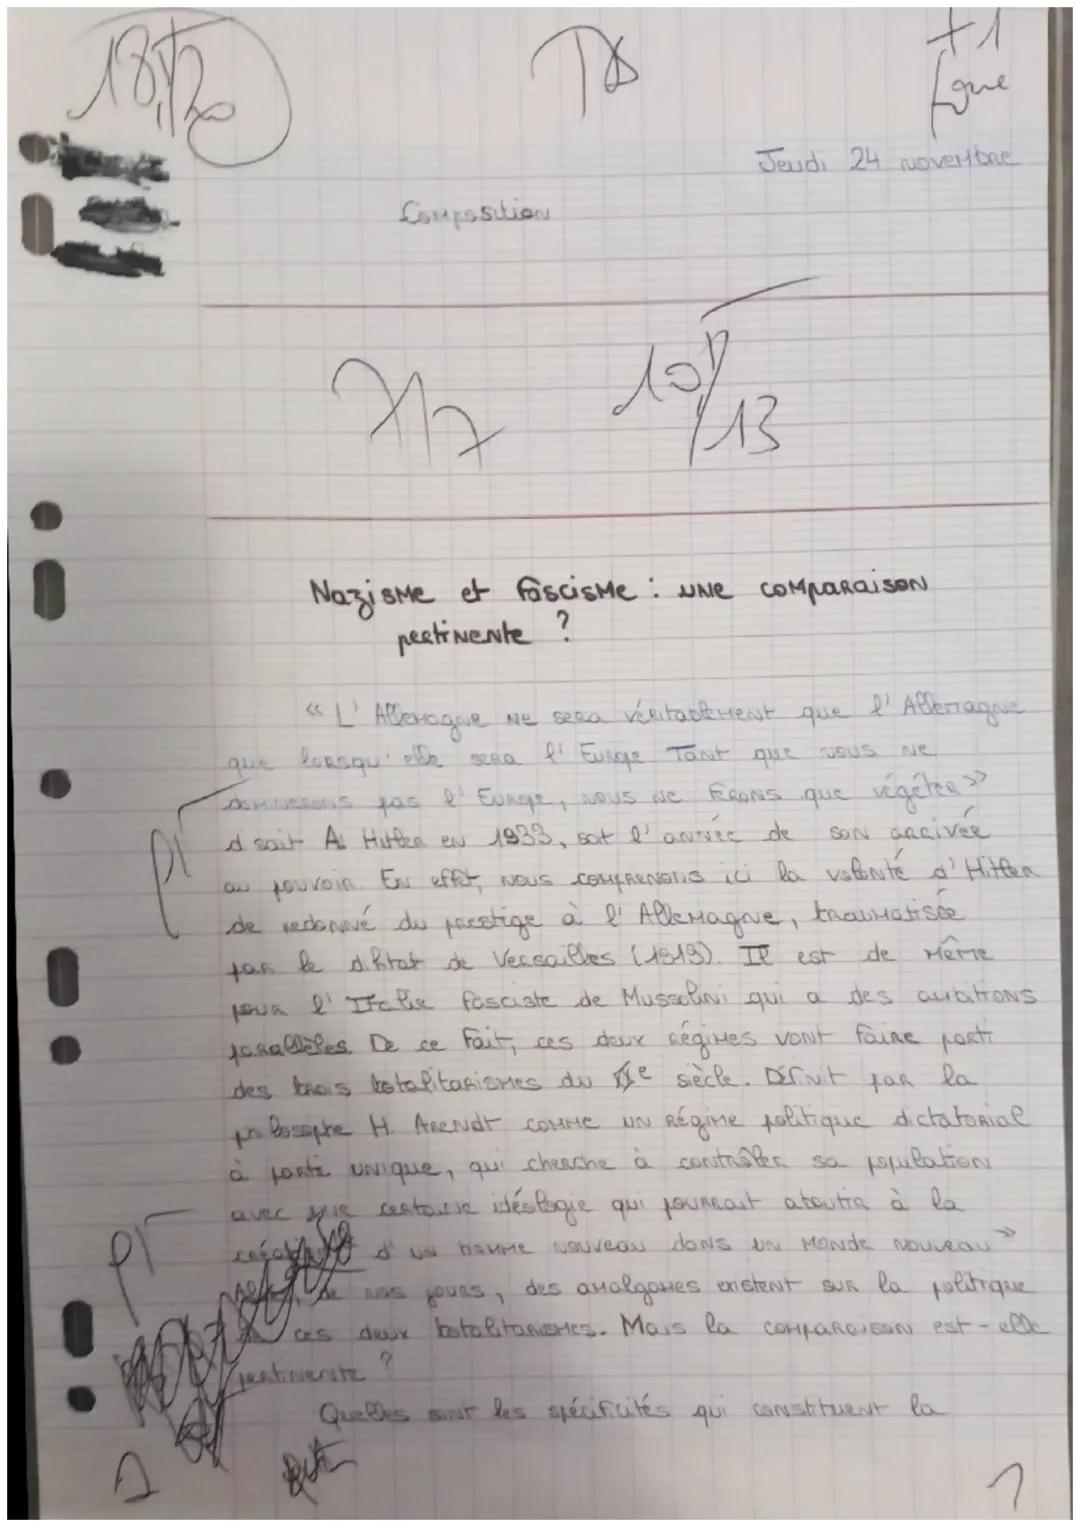 18,5/20
TB
+1
Jeudi 24 novembre
Composition
7/7
10,5/13
Nazisme et fascisme : une comparaison
pertinente ?
« L' Allemagne ne sera véritablement que l' Allemagne
que lorsqu' elle sera l' Europe. Tant que nous ne
dominerons pas l' Europe, nous ne ferons que végéter »
disait A. Hitler en 1933, soit l' année de son arrivée
au pouvoir. En effet, nous comprenons ici la volonté d' Hitler
de redonné du prestige à l' Allemagne, traumatisée
par le diktat de Versailles (1919). Il est de même
pour l' Italie fasciste de Mussolini qui a des ambitions
parallèles. De ce fait, ces deux régimes vont faire parti
des trois totalitarismes du XXe siècle. Définit par la
philosophe H. Arendt comme un régime politique dictatorial
à parti unique, qui cherche à contrôler sa population
avec une certaine idéologie qui pourrait aboutir à la
d' un homme nouveau dans un monde nouveau »
de nos jours, des amalgames existent sur la politique
ces deux totalitarismes. Mais la comparaison est-elle
pertinente ?
Quelles sont les spécificités qui constituent la